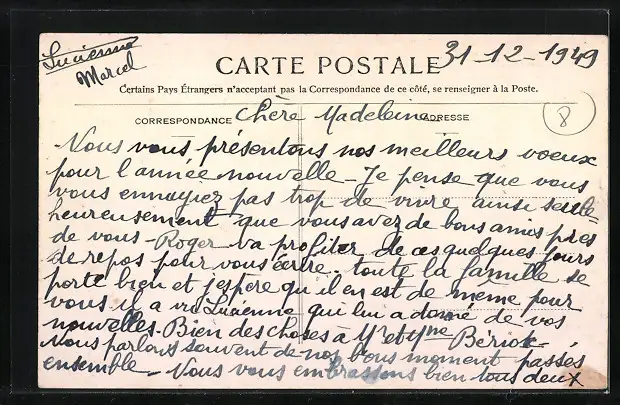 Lucienne
Marcel
31-12-1949
CARTE POSTALE
Certains Pays Étrangers n'acceptant pas la Correspondance de ce côté, se renseigner à la Poste.
CORRESPONDANCE Chère Madeleine ADRESSE
8
Nous vous présentons nos meilleurs voeux
pour l'année nouvelle - Je pense que vous
vous ennuyez pas trop de vivre ainsi seule -
heureusement que vous avez de bons amis près
de vous - Roger va profiter de ces quelques jours
de repos pour vous écrire. toute la famille se
porte bien et j'espère qu'il en est de même pour
vous il a vu Lucienne qui lui a donné de vos
nouvelles - Bien des choses à Mr et Mme
Nous parlons souvent de nos bons moment passés
ensemble - Nous vous embrassons bien tous deux